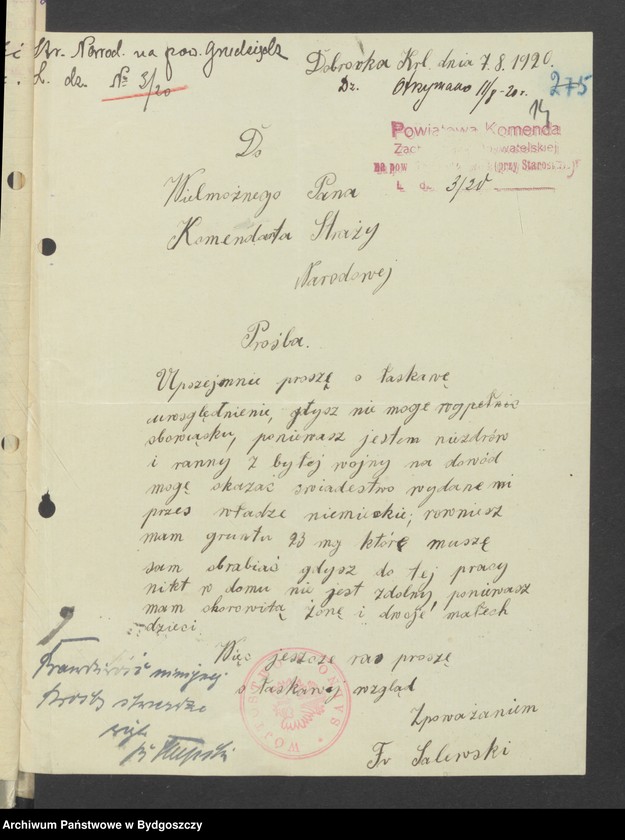 Str. Narod. na pow. Grudziądz
L. dz. № 3/20
Dobrovka Krl. dnia 7.8.1920.
Dz. Otrzymano 11/8-20 r.
275
14
Powiatowa Komenda
na pow (przy Starost
L. d. 3/20
Do
Wielmożnego Pana
Komendarta Straży
Narodowej
Prośba.
Upszejmnie proszę o łaskawę
uwosględnienie, gdysz nie moge wypełnic
obowiąsku, poniewasz jestem niezdrów
i ranny z byłej wojny na dowód
mogę okazać świadestwo wydane mi
przes władze niemieckie, rowniesz
mam gruntu 23 mg którę muszę
sam obrabiać gdysz do tej pracy
nikt w domu nie jest zdolny, poniewasz
mam chorowitą żonę i dwoje małech
dzieci
Więc jeszcze ras proszę
o łaskawej wzgląd
Zpoważaniem
Fr Salewski
Prawdziwość niniejszej
prośby stwierdza
WÓJTOSTWO
Archiwum Państwowe w Bydgoszczy